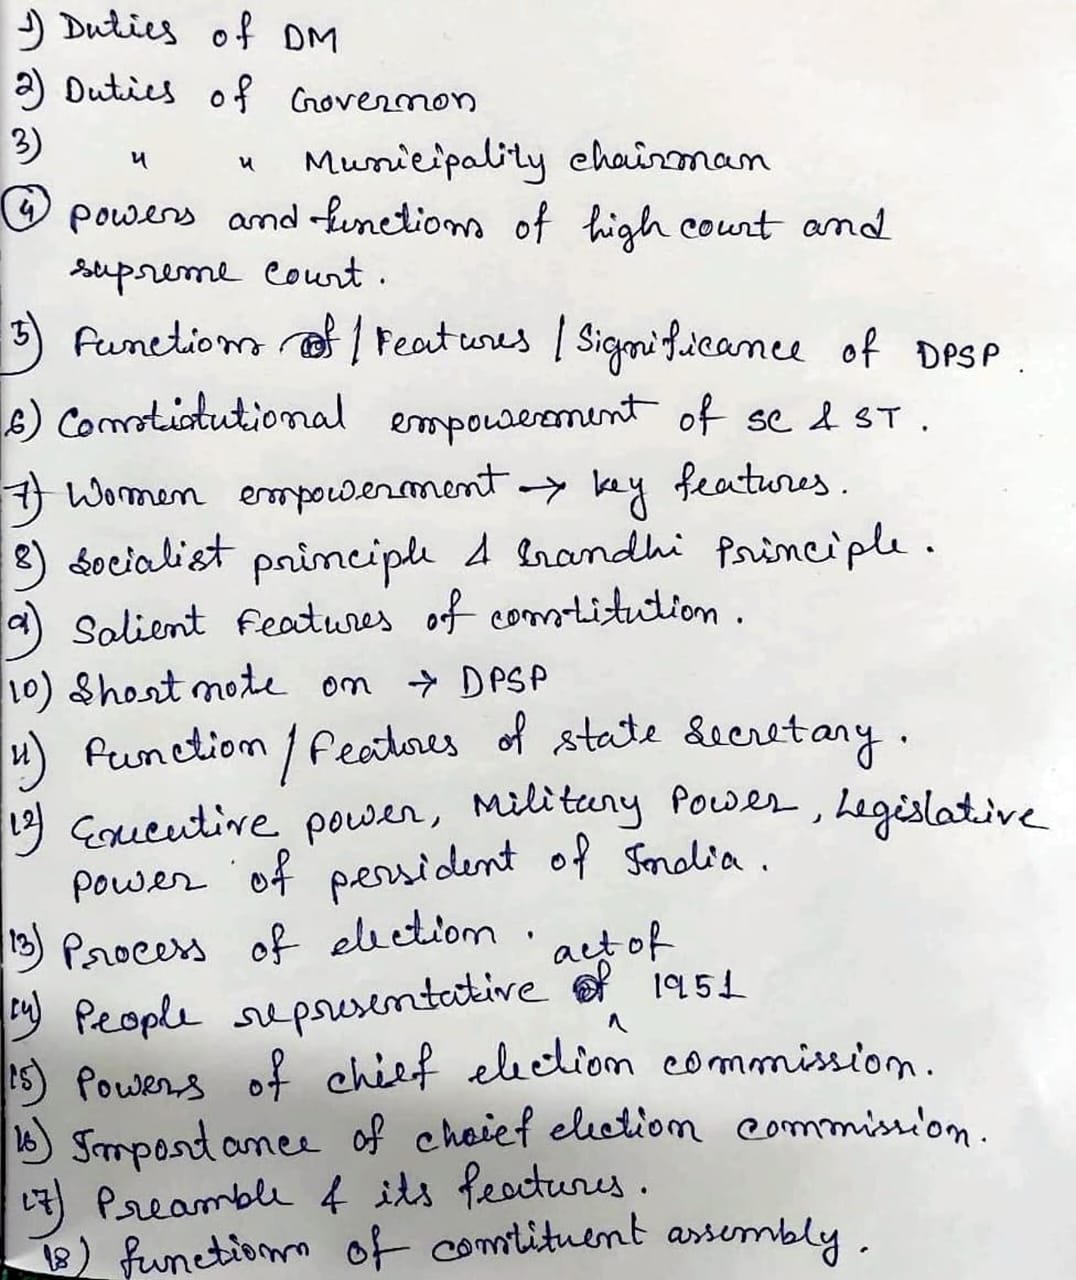 1) Duties of DM
2) Duties of Governor
3) " " Municipality chairman
4) powers and functions of high court and
supreme court.
5) functions of / Features / Significance of DPSP.
6) Constiotutional empowerment of SC & ST.
7) Women empowerment → key features.
8) Socialist principle & Grandhi Principle.
9) Salient Features of constitution.
10) Short note on → DPSP
11) function / features of state Secretary.
12) Executive power, Military Power, Legislative
power of persident of India.
13) Process of election.
14) People representative act of 1951
15) Powers of chief election commission.
16) Importance of cheief election commission.
17) Preamble & its features.
18) functions of constituent assembly.